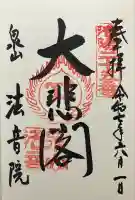 奉拝 令和七年六月一日
大悲閣
泉山
法音院